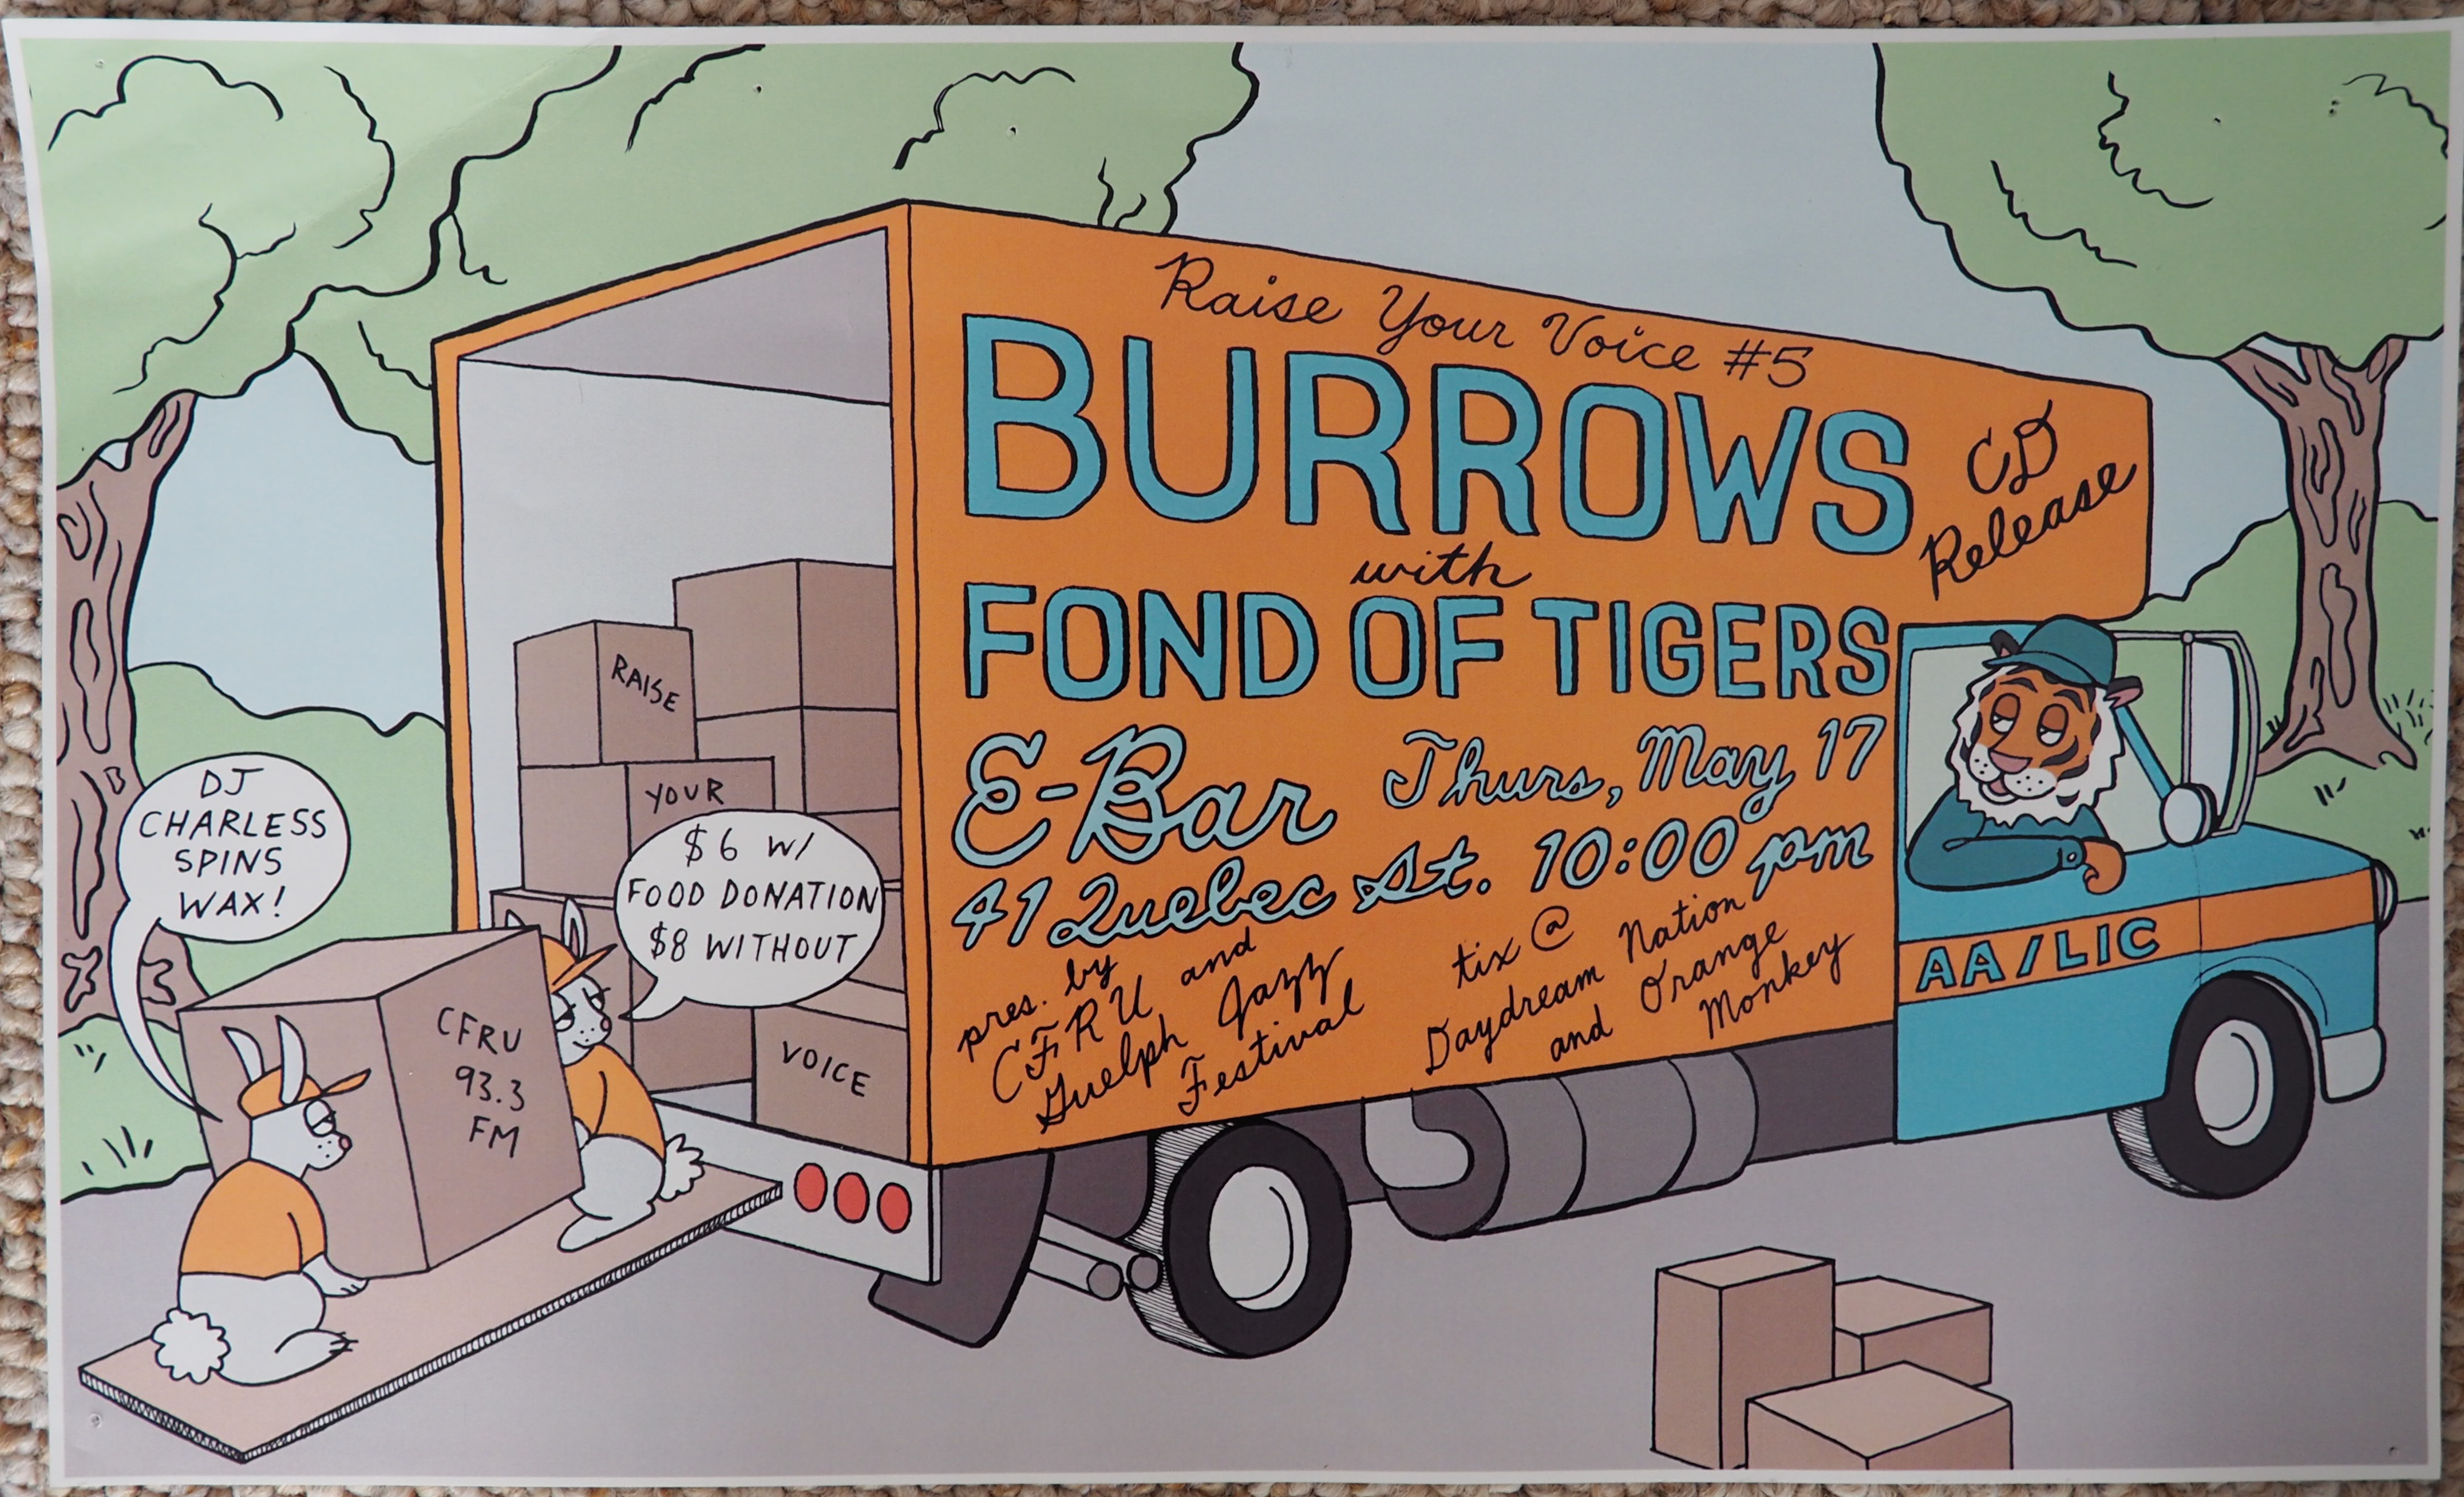 Raise Your Voice #5
BURROWS
CD
Release
with
FOND OF TIGERS
E-Bar
Thurs, May 17
41 Quebec St. 10:00 pm
pres. by
CFRU and
Guelph Jazz
Festival
tix @
Daydream Nation
and Orange
Monkey
AA/LIC
RAISE
YOUR
VOICE
$6 W/
FOOD DONATION
$8 WITHOUT
DJ
CHARLESS
SPINS
WAX!
CFRU
93.3
FM